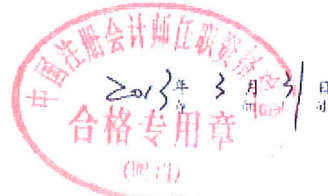 中国注册会计师任职资格
2013年3月31日
合格专用章